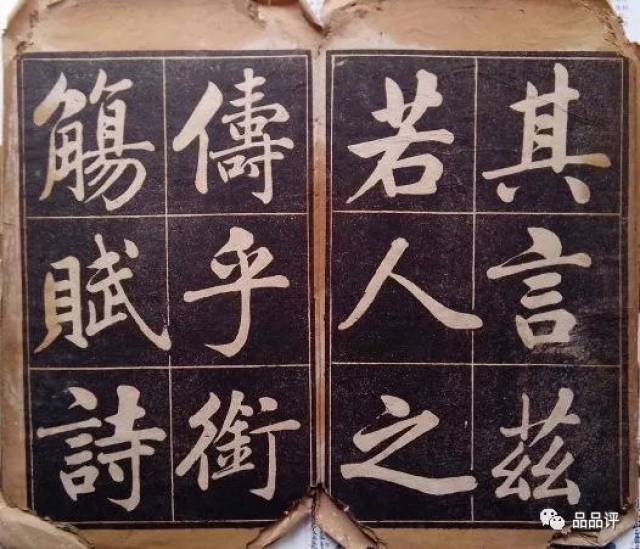 其言茲
若人之
儔乎銜
觴賦詩
品品评